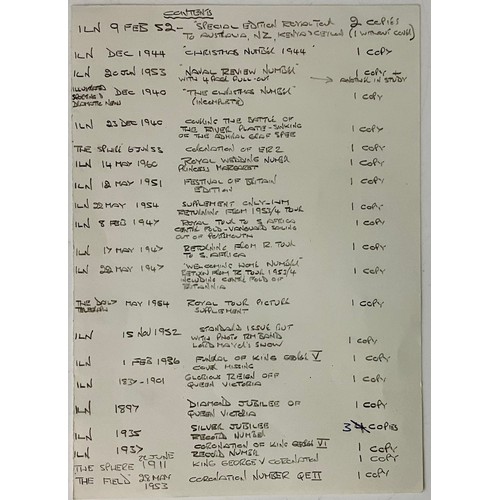 CONTENTS
ILN 9 FEB 52 - "SPECIAL EDITION ROYAL TOUR 2 COPIES
TO AUSTRALIA, NZ, KENYA & CEYLON (1 WITHOUT COVER)
ILN DEC 1944 "CHRISTMAS NUMBER 1944" 1 COPY
ILN 20 JUN 1953 "NAVAL REVIEW NUMBER" 1 COPY +
WITH 4 PAGE PULL-OUT → ANOTHER IN STUDY
ILLUSTRATED
SPORTING & DEC 1940 "THE CHRISTMAS NUMBER" 1 COPY
DRAMATIC NEWS (INCOMPLETE)
ILN 23 DEC 1940 COVERING THE BATTLE OF 1 COPY
THE RIVER PLATE - SINKING
OF THE ADMIRAL GRAF SPEE
THE SPHERE 6 JUN 53 CORONATION OF ER2 1 COPY
ILN 14 MAY 1960 ROYAL WEDDING NUMBER 1 COPY
PRINCESS MARGARET
ILN 12 MAY 1951 FESTIVAL OF BRITAIN 1 COPY
EDITION
ILN 22 MAY 1954 SUPPLEMENT ONLY - HM 1 COPY
RETURNING FROM 1953/4 TOUR
ILN 8 FEB 1947 ROYAL TOUR TO S. AFRICA 1 COPY
CENTRE FOLD - VANGUARD SAILING
OUT OF PORTSMOUTH
ILN 17 MAY 1947 RETURNING FROM R. TOUR 1 COPY
TO S. AFRICA
"WELCOMING HOME NUMBER"
ILN 22 MAY 1947 RETURN FROM R TOUR 1953/4 1 COPY
INCLUDING CENTRE FOLD OF
BRITANNIA
THE DAILY MAY 1954 ROYAL TOUR PICTURE 1 COPY
TELEGRAPH SUPPLEMENT
ILN 15 NOV 1952 STANDARD ISSUE BUT
WITH PHOTO RM BAND 1 COPY
LORD MAYOR'S SHOW
ILN 1 FEB 1936 FUNERAL OF KING GEORGE V 1 COPY
COVER MISSING
ILN 1837-1901 GLORIOUS REIGN OFF 1 COPY
QUEEN VICTORIA
ILN 1897 DIAMOND JUBILEE OF 1 COPY
QUEEN VICTORIA
ILN 1935 SILVER JUBILEE 3 COPIES
RECORD NUMBER
ILN 1937 CORONATION OF KING GEORGE VI 1 COPY
RECORD NUMBER
THE SPHERE 22 JUNE 1911 KING GEORGE V CORONATION 1 COPY
THE FIELD 28 MAY 1953 CORONATION NUMBER QE II 1 COPY